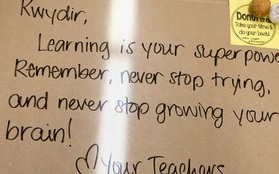 Kwydir,
Learning is your superpowe
Remember, never stop trying,
and never stop growing your
brain!
♡Your Teachers
Take your time &
do your best!